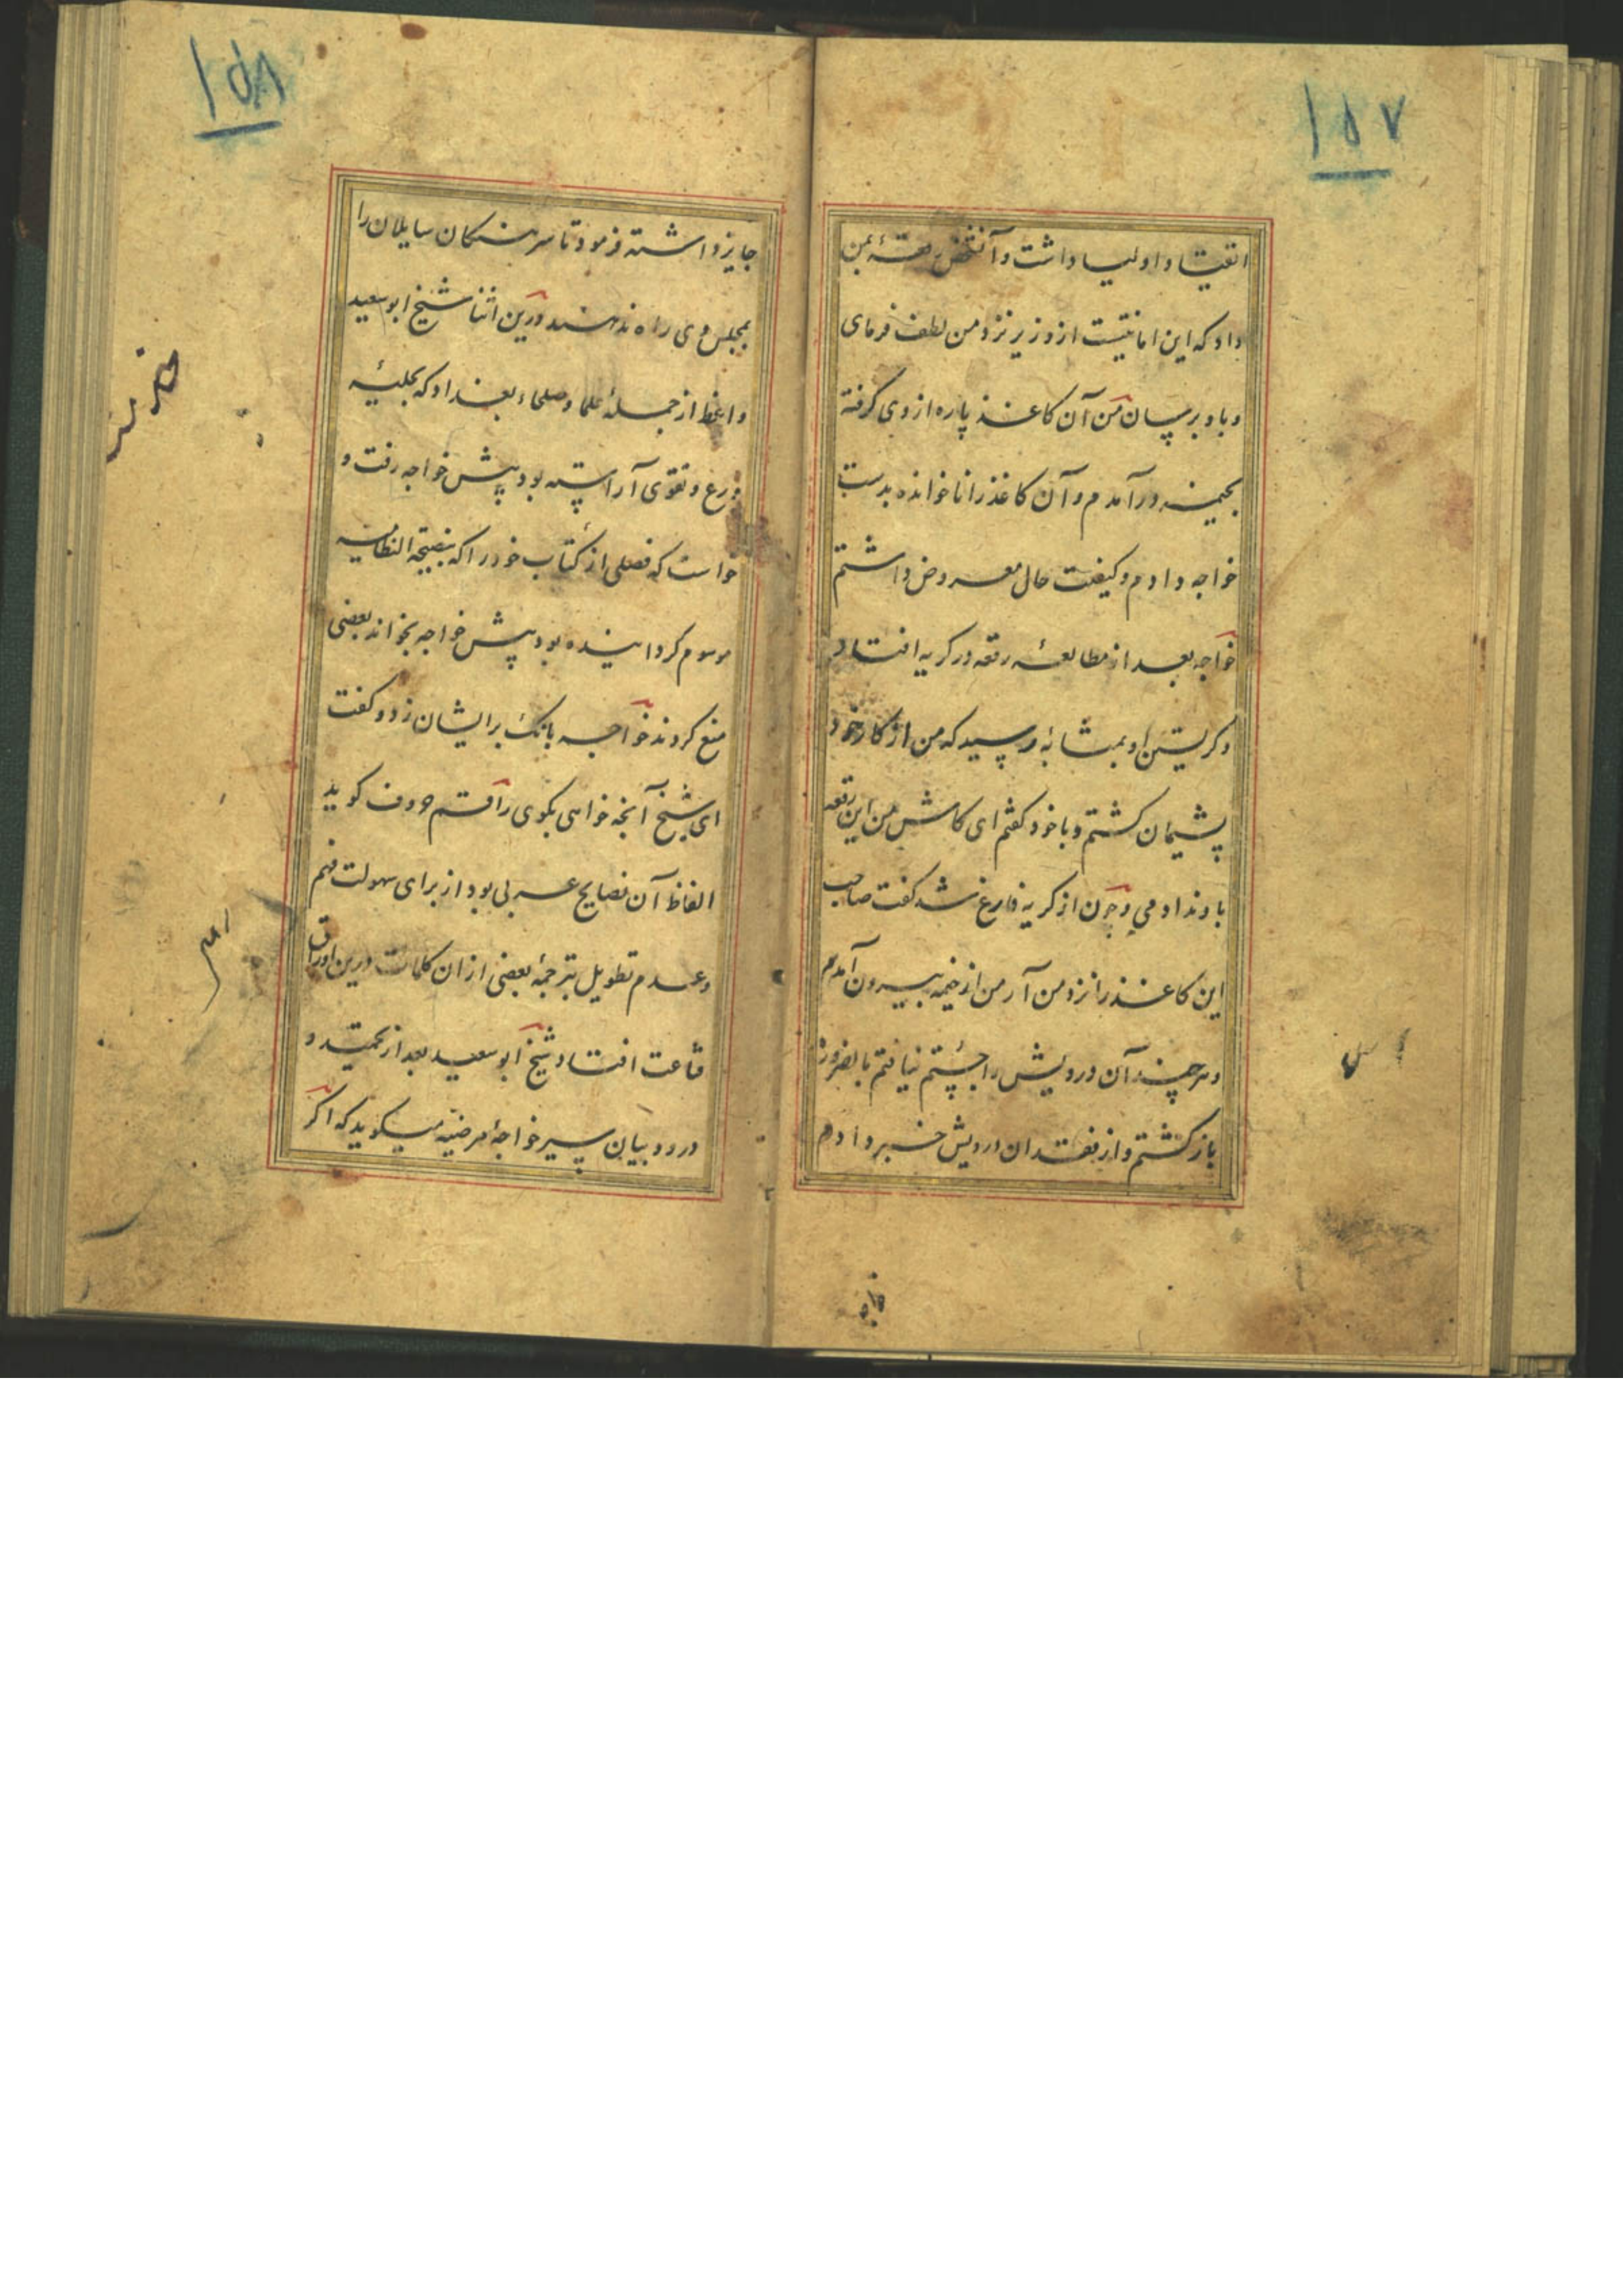 ۱۵۷
اتقیا و اولیا داشت و آنشخص رقعهٔ بمن
داد که این امانتیست از وزیر نزد من لطف فرمای
و باو برسان من آن کاغذ پاره از وی گرفته
بخیمه درآمدم و آن کاغذ را ناخوانده بدست
خواجه دادم و کیفیت حال معروض داشتم
خواجه بعد از مطالعهٔ رقعه در کریه افتاد
و کریستن او بمثابهٔ رسید که من از کار خود
پشیمان کشتم و با خود کفتم ای کاش من این رقعه
باو ندادمی و چون از کریه فارغ شد کفت صاحب
این کاغذ را نزد من آر من از خیمه بیرون آمدم
و هر چند آن درویش را جستم نیافتم بالضروره
باز کشتم و از فقدان درویش خبر دادم
۱۵۸
جایز داشته فرمود تا سرهنکان سایلان را
بمجلس وی راه ندهند درین اثنا شیخ ابو سعید
واعظ از جملهٔ علما و صلحاء بغداد که بحلیهٔ
ورع و تقوی آراسته بود پیش خواجه رفت و
خواست که فصلی از کتاب خود را که بنصیحة النظامیه
موسوم کردانیده بود پیش خواجه بخواند بعضی
منع کردند خواجه بانک بر ایشان زد و کفت
ای شیخ آنچه خواهی بکوی راقم حروف کوید
الفاظ آن نصایح عربی بود از برای سهولت فهم
و عدم تطویل بترجمهٔ بعضی از ان کلمات درین اوراق
قناعت افتاد شیخ ابو سعید بعد از تحمید و
درود و بیان سیر خواجهٔ مرضیه میکوید که اکر